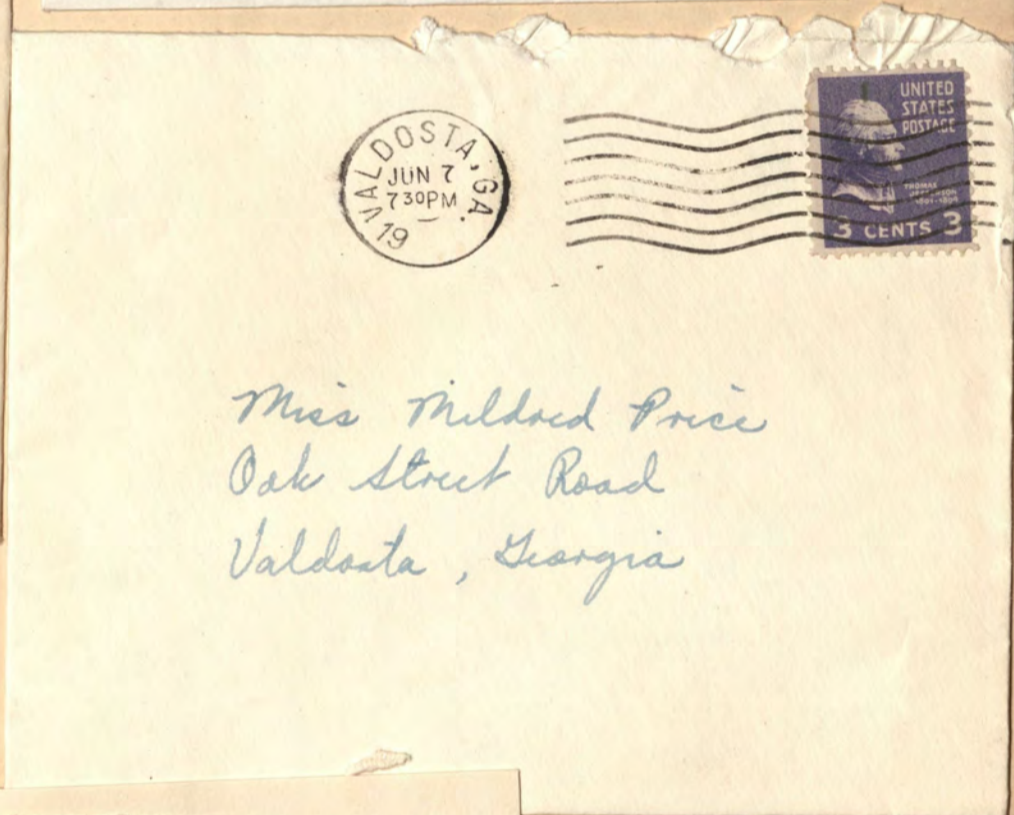 VALDOSTA, GA.
JUN 7
7 30 PM
19
UNITED
STATES
POSTAGE
THOMAS
JEFFERSON
1801-1809
3 CENTS 3
Miss Mildred Price
Oak Street Road
Valdosta, Georgia